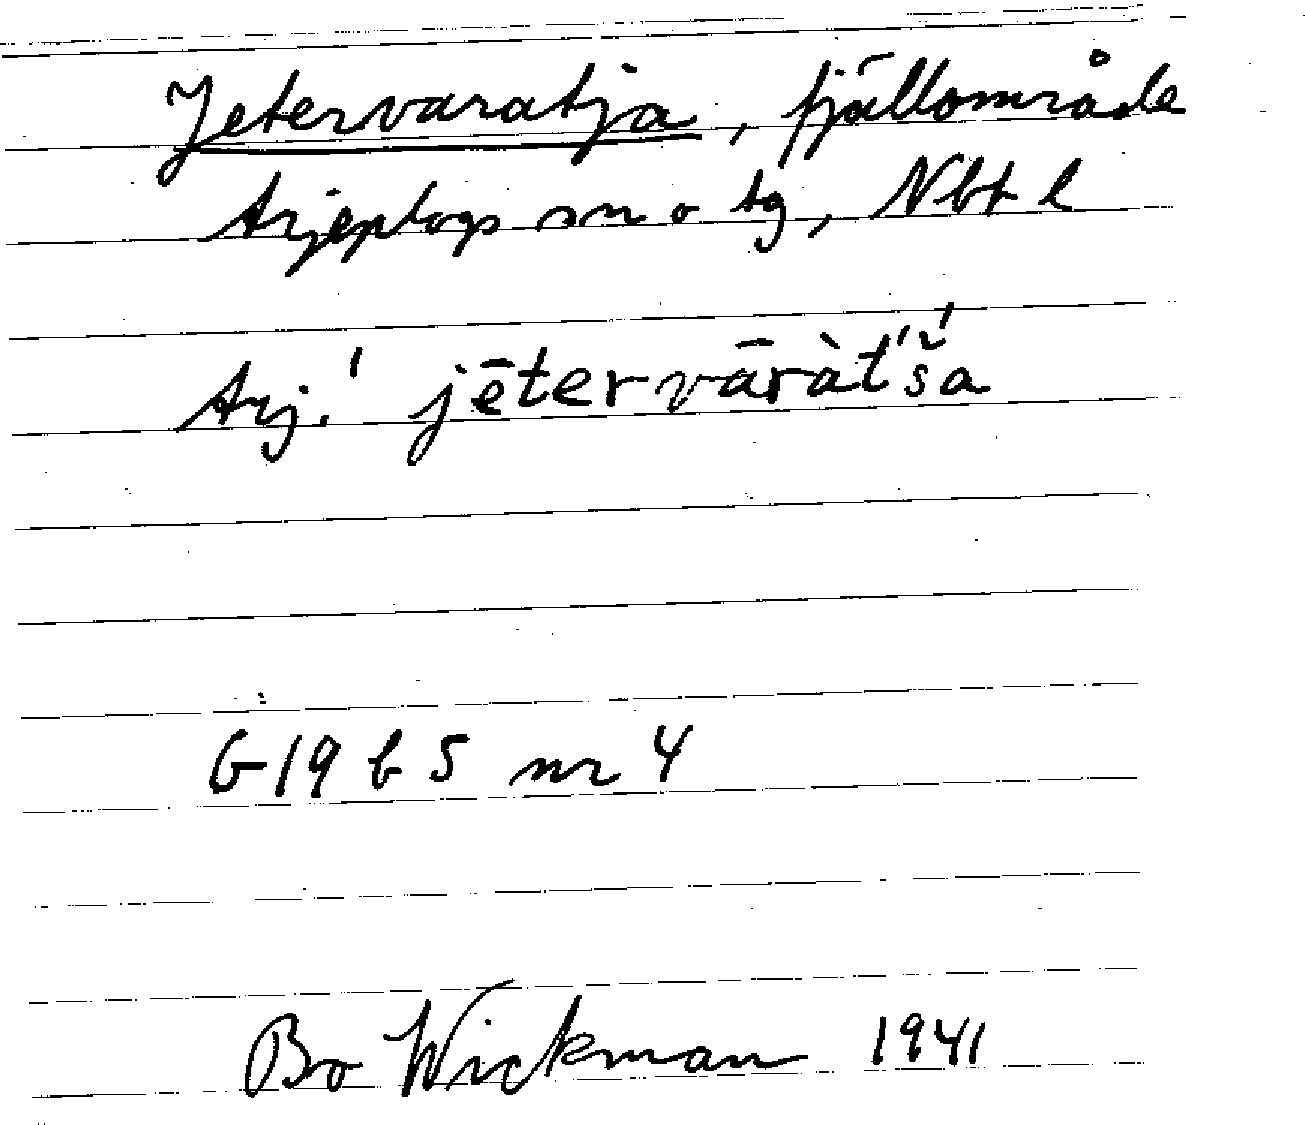 Jetervaratja, fjällområde
Arjeplogs sn o tg, Nbt l
Arj.' jētervāràt́'š́a
G 19 b 5 nr 4
Bo Wickman 1941